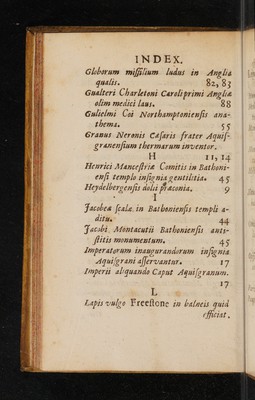 INDEX.
Globorum miſſilium ludus in Anglia
qualis. 82, 83
Gualteri Charletoni Caroli primi Angliæ
olim medici laus. 88
Gulielmi Coi Northamptonienſis ana-
thema. 55
Granus Neronis Cæſaris frater Aquiſ-
granenſium thermarum inventor.
H 11, 14
Henrici Manceſtriæ Comitis in Bathoni-
enſi templo inſignia gentilitia. 45
Heydelbergenſis dolii præconia. 9
I
Jacobeæ ſcalæ in Bathonienſis templi a-
ditu. 44
Jacobi Montacutii Bathonienſis anti-
ſtitis monumentum. 45
Imperatorum inaugurandorum inſignia
Aquiſgrani aſſervantur. 17
Imperii aliquando Caput Aquiſgranum.
17
L
Lapis vulgo Freeſtone in balneis quid
efficiat.